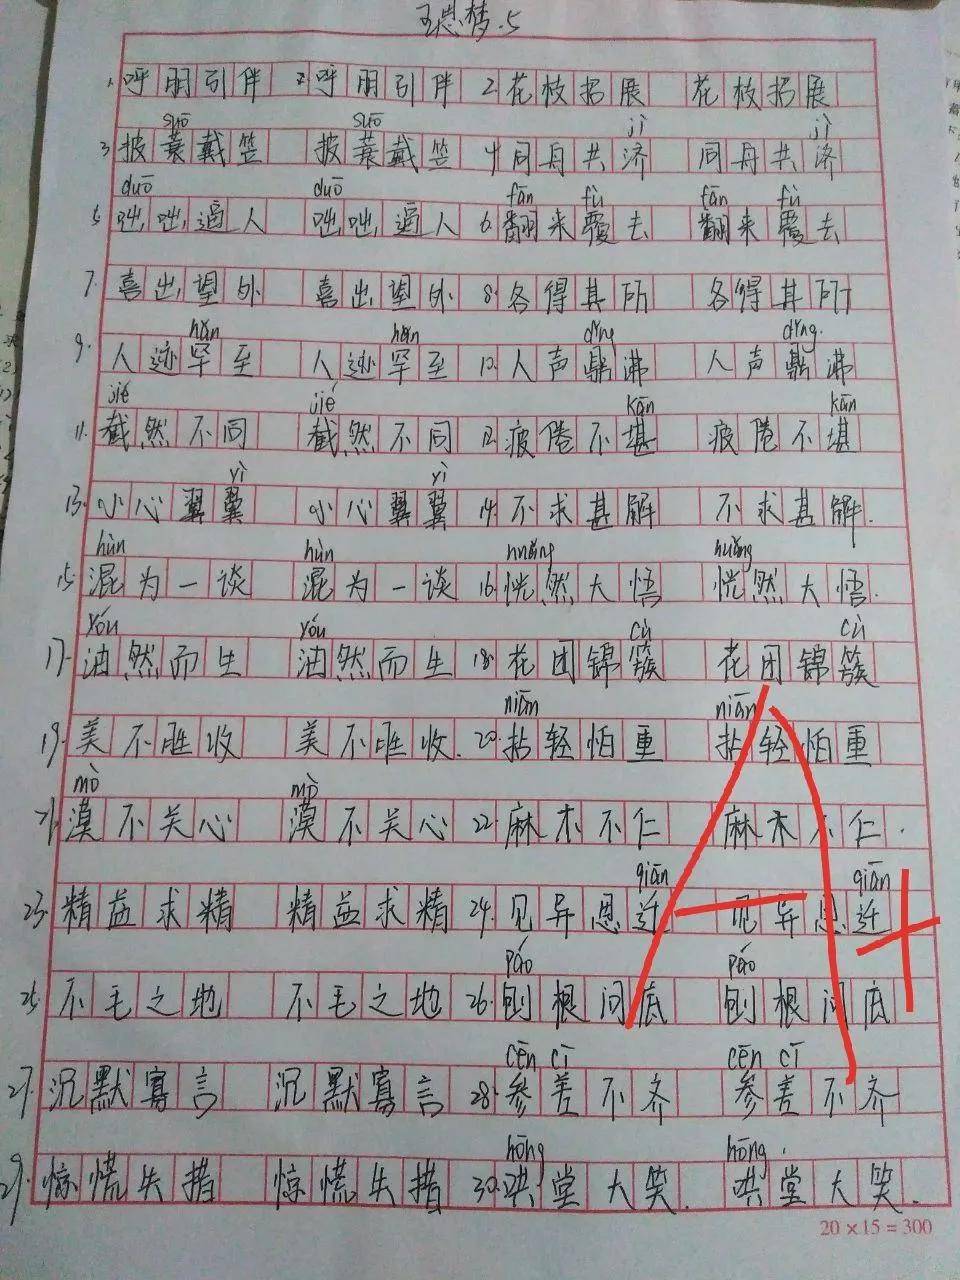 王思梦.5
1.呼朋引伴 2.呼朋引伴 2.花枝招展 花枝招展
suō suō jì jì
3.披蓑戴笠 披蓑戴笠 4.同舟共济 同舟共济
duō duō fān fù fān fù
5.咄咄逼人 咄咄逼人 6.翻来覆去 翻来覆去
7.喜出望外 喜出望外 8.各得其所 各得其所
hǎn hǎn dǐng dǐng.
9.人迹罕至 人迹罕至 10.人声鼎沸 人声鼎沸
jié jié kān kān
11.截然不同 截然不同 12.疲倦不堪 疲倦不堪
yì yì
13.小心翼翼 小心翼翼 14.不求甚解 不求甚解.
hùn hùn huǎng huǎng
15.混为一谈 混为一谈 16.恍然大悟 恍然大悟.
yóu yóu cù cù
17.油然而生 油然而生 18.花团锦簇 花团锦簇
niān niān
19.美不胜收 美不胜收. 20.拈轻怕重 拈轻怕重
mò mò
21.漠不关心 漠不关心 22.麻木不仁 麻木不仁.
qiān qiān
23.精益求精 精益求精 24.见异思迁 见异思迁
páo páo
25.不毛之地 不毛之地 26.刨根问底 刨根问底
cēn cī cēn cī
27.沉默寡言 沉默寡言 28.参差不齐 参差不齐
hōng hōng
29.惊慌失措 惊慌失措 30.哄堂大笑. 哄堂大笑.
A+
20×15=300